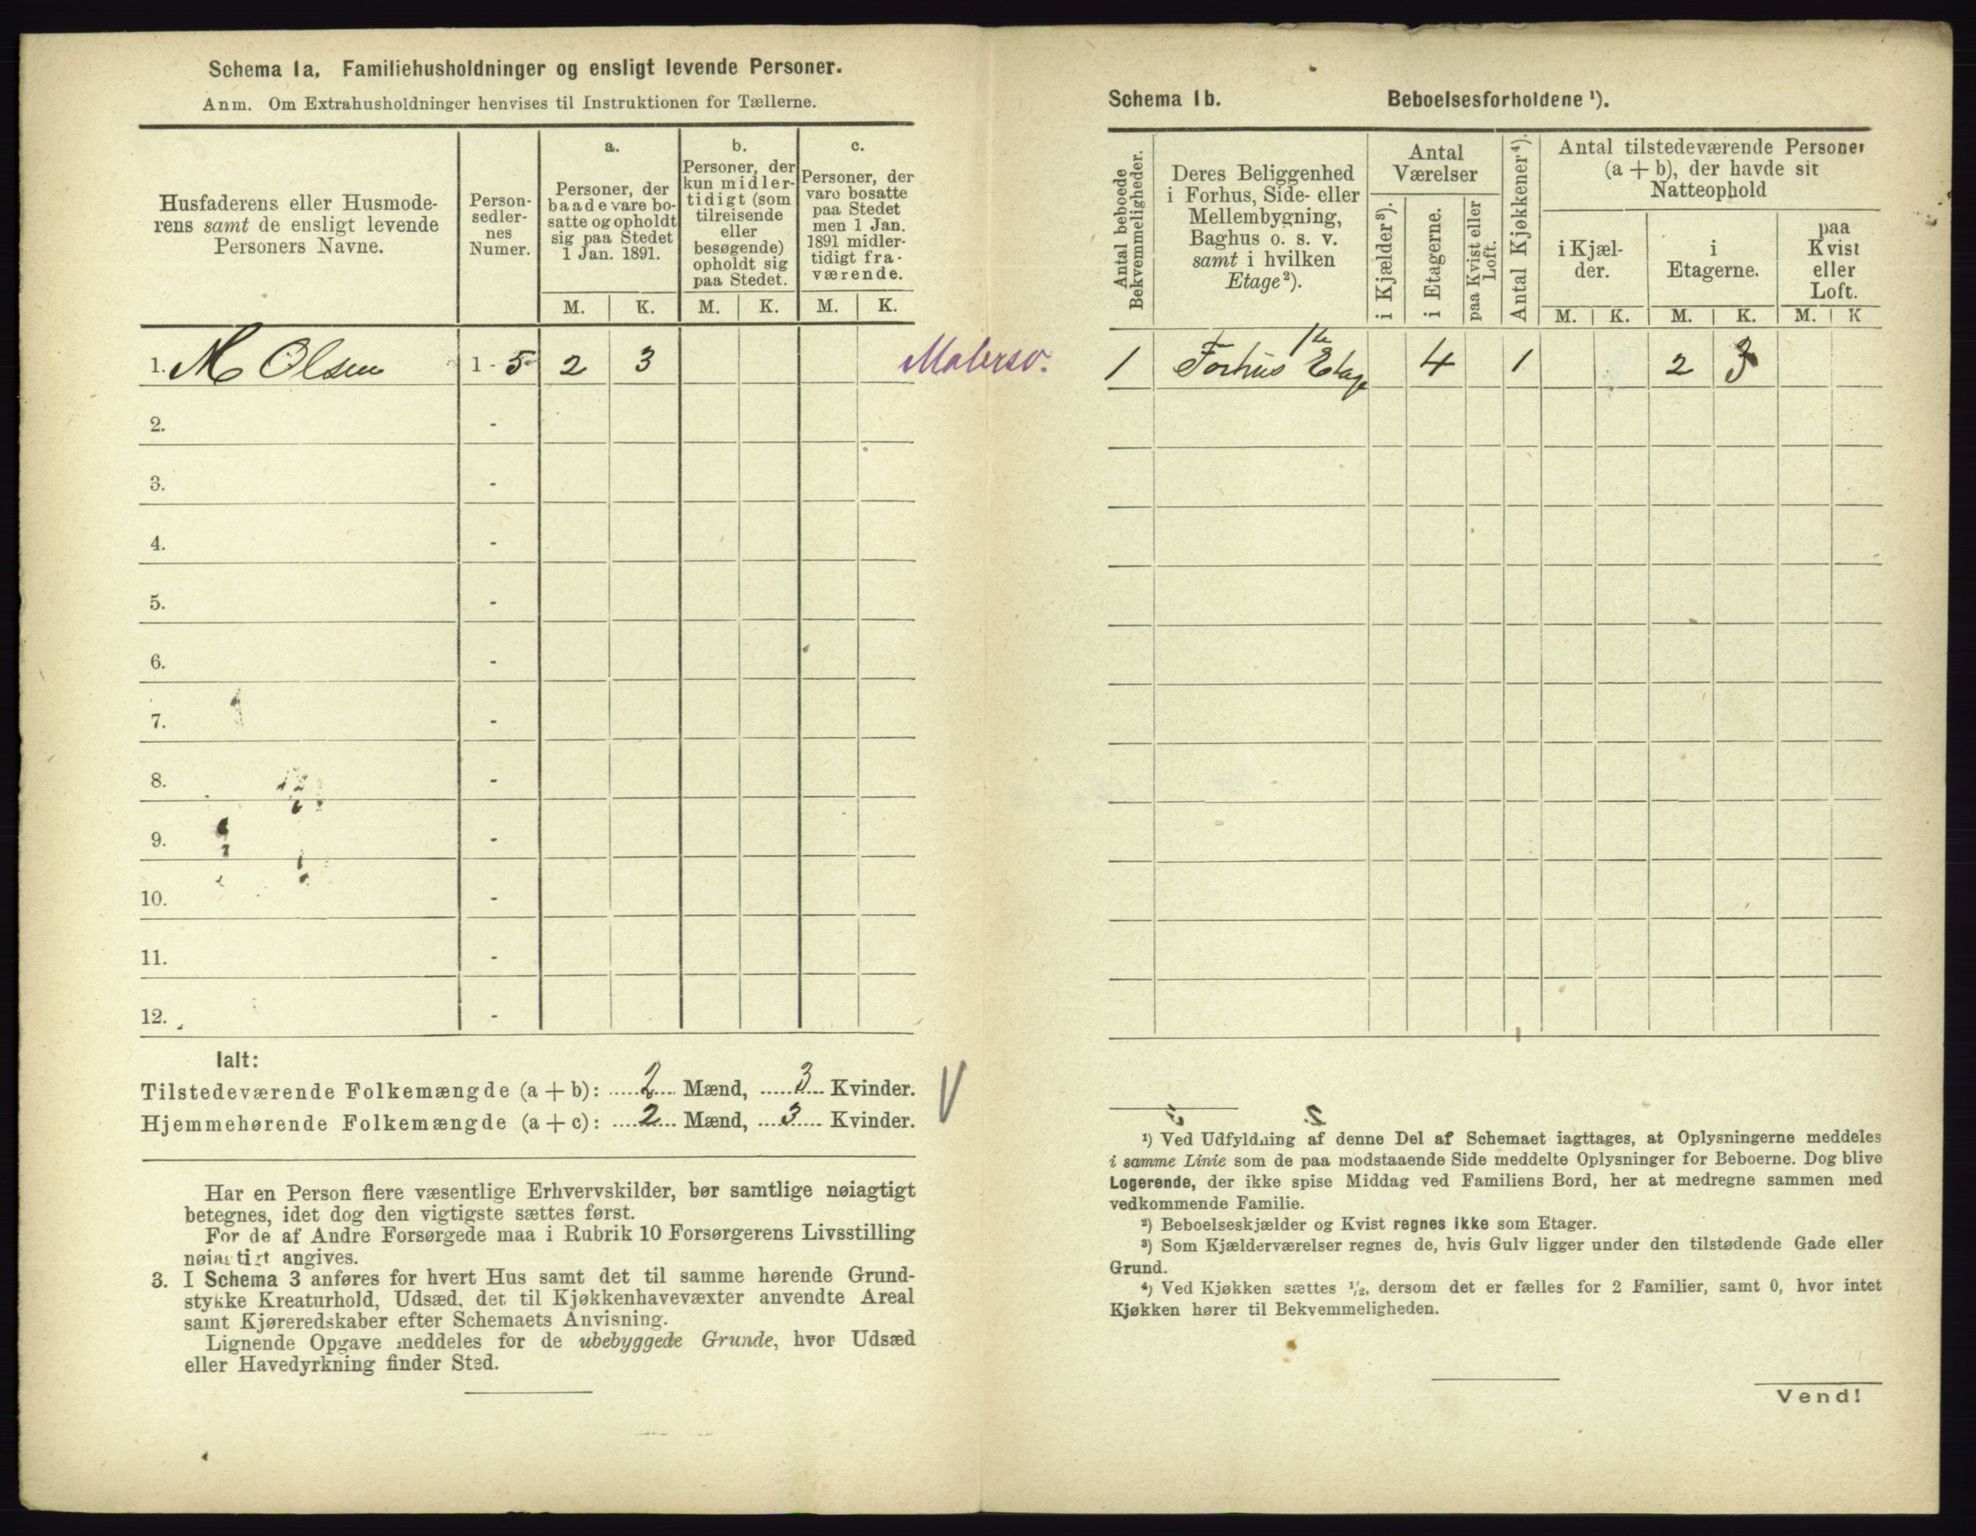 Schema 1a. Familiehusholdninger og ensligt levende Personer.
Anm. Om Extrahusholdninger henvises til Instruktionen for Tællerne.
Husfaderens eller Husmode-
rens samt de ensligt levende
Personers Navne.
Person-
sedler-
nes
Numer.
a.
Personer, der
baade vare bo-
satte og opholdt
sig paa Stedet
1 Jan. 1891.
b.
Personer, der
kun midler-
tidigt (som
tilreisende
eller
besøgende)
opholdt sig
paa Stedet.
c.
Personer, der
vare bosatte
paa Stedet
men 1 Jan.
1891 midler-
tidigt fra-
værende.
M. K. M. K. M. K.
1. M Olsen 1 - 5 2 3
2. -
3. -
4. -
5. -
6. -
7. -
8. -
9. -
10. -
11. -
12. -
Ialt:
Tilstedeværende Folkemængde (a + b): 2 Mænd, 3 Kvinder.
Hjemmehørende Folkemængde (a + c): 2 Mænd, 3 Kvinder.
Har en Person flere væsentlige Erhvervskilder, bør samtlige nøiagtigt
betegnes, idet dog den vigtigste sættes først.
For de af Andre Forsørgede maa i Rubrik 10 Forsørgerens Livsstilling
nøiagtigt angives.
3. I Schema 3 anføres for hvert Hus samt det til samme hørende Grund-
stykke Kreaturhold, Udsæd, det til Kjøkkenhavevæxter anvendte Areal
samt Kjøreredskaber efter Schemaets Anvisning.
Lignende Opgave meddeles for de ubebyggede Grunde, hvor Udsæd
eller Havedyrkning finder Sted.
Schema 1b. Beboelsesforholdene ¹).
Antal beboede
Bekvemmeligheder.
Deres Beliggenhed
i Forhus, Side- eller
Mellembygning,
Baghus o. s. v.
samt i hvilken
Etage²).
Antal
Værelser
i Kjælder³).
i Etagerne.
paa Kvist eller
Loft.
Antal Kjøkkener⁴).
Antal tilstedeværende Personer
(a + b), der havde sit
Natteophold
i Kjæl-
der.
i
Etagerne.
paa
Kvist
eller
Loft.
M. K. M. K. M. K
1 Forhus 1te Etage 4 1 2 3
¹) Ved Udfyldning af denne Del af Schemaet iagttages, at Oplysningerne meddeles
i samme Linie som de paa modstaaende Side meddelte Oplysninger for Beboerne. Dog blive
Logerende, der ikke spise Middag ved Familiens Bord, her at medregne sammen med
vedkommende Familie.
²) Beboelseskjælder og Kvist regnes ikke som Etager.
³) Som Kjælderværelser regnes de, hvis Gulv ligger under den tilstødende Gade eller
Grund.
⁴) Ved Kjøkken sættes ¹/₂, dersom det er fælles for 2 Familier, samt 0, hvor intet
Kjøkken hører til Bekvemmeligheden.
Vend!